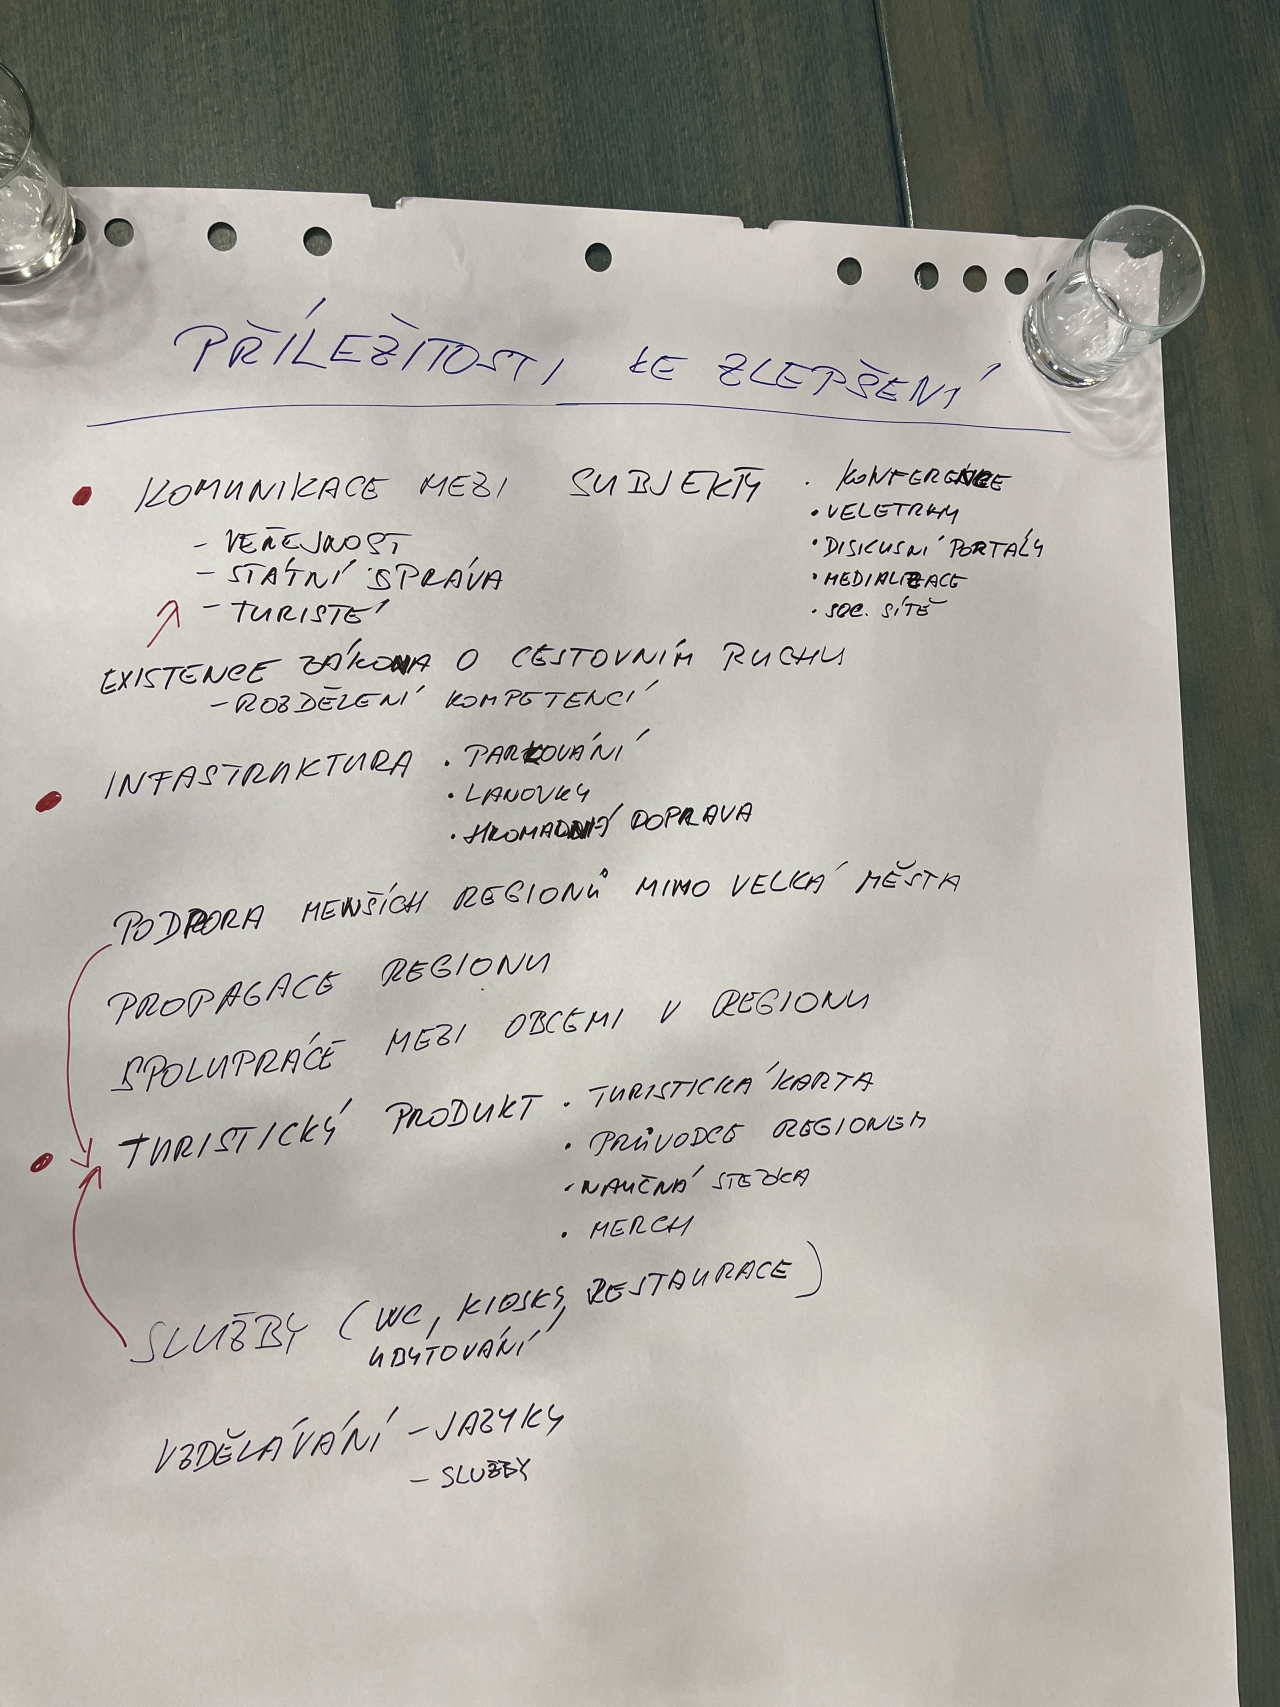 PŘÍLEŽITOSTI KE ZLEPŠENÍ
• KOMUNIKACE MEZI SUBJEKTY
- VEŘEJNOST
- STÁTNÍ SPRÁVA
- TURISTÉ
· KONFERENCE
• VELETRHY
• DISKUSNÍ PORTÁLY
• MEDIALIZACE
• SOC. SÍTĚ
EXISTENCE ZÁKONA O CESTOVNÍM RUCHU
- ROZDĚLENÍ KOMPETENCÍ
• INFASTRUKTURA
• PARKOVÁNÍ
• LANOVKY
• HROMADNÁ DOPRAVA
PODPORA MENŠÍCH REGIONŮ MIMO VELKÁ MĚSTA
PROPAGACE REGIONU
SPOLUPRÁCE MEZI OBCEMI V REGIONU
• TURISTICKÝ PRODUKT
• TURISTICKÁ KARTA
• PRŮVODCE REGIONEM
• NAUČNÁ STEZKA
• MERCH
SLUŽBY (WC, KIOSKY, RESTAURACE)
UBYTOVÁNÍ
VZDĚLÁVÁNÍ - JAZYKY
- SLUŽBY